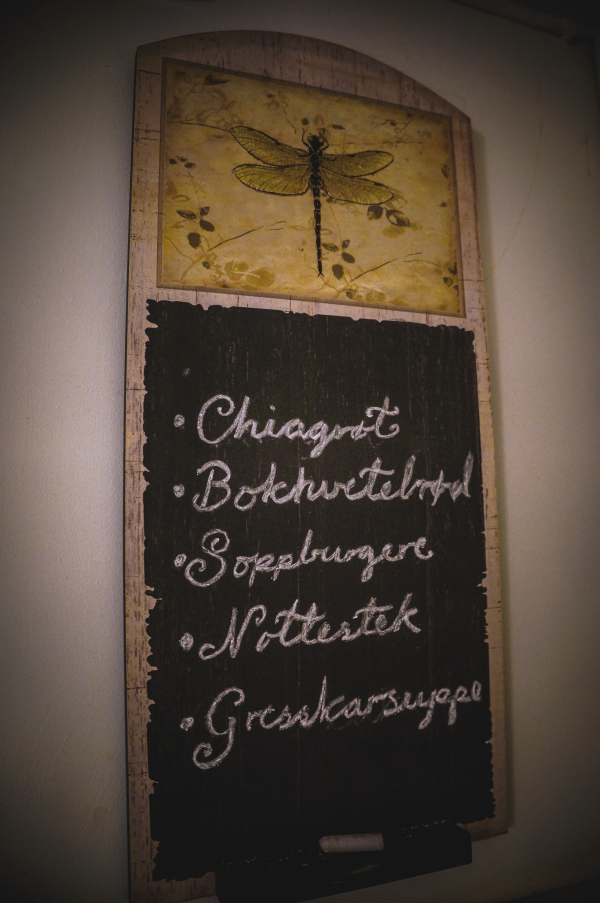 • Chiagrøt
• Bokhvetebrød
• Soppburgere
• Nøttestek
• Gresskarsuppe